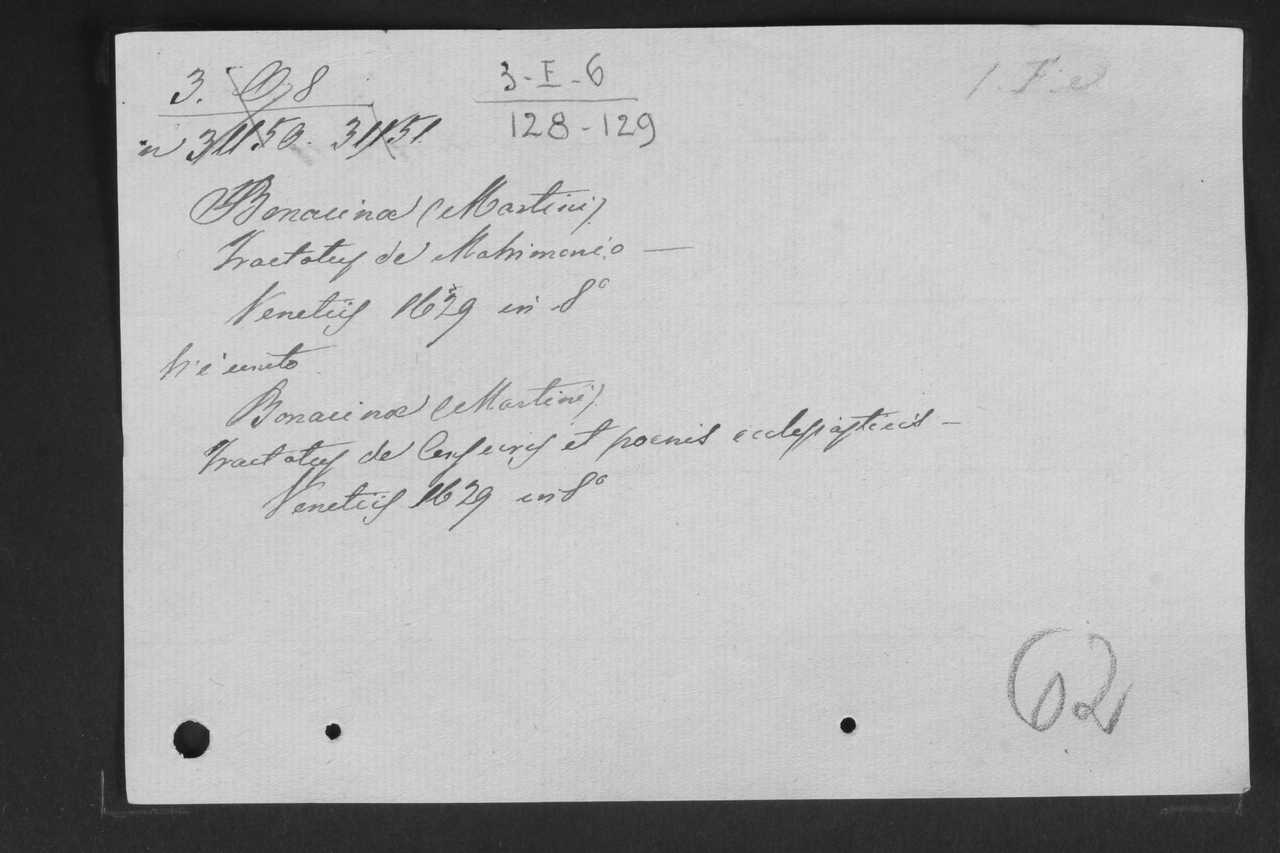 3. O 8
3-I-6
n 31150. 31151.
128-129
Bonacinæ (Martini)
Tractatus de Matrimonio —
Venetiis 1629 in 8º
Vi è unito
Bonacinæ (Martini)
Tractatus de Censuris et poenis ecclesiasticis —
Venetiis 1629 in 8º
62